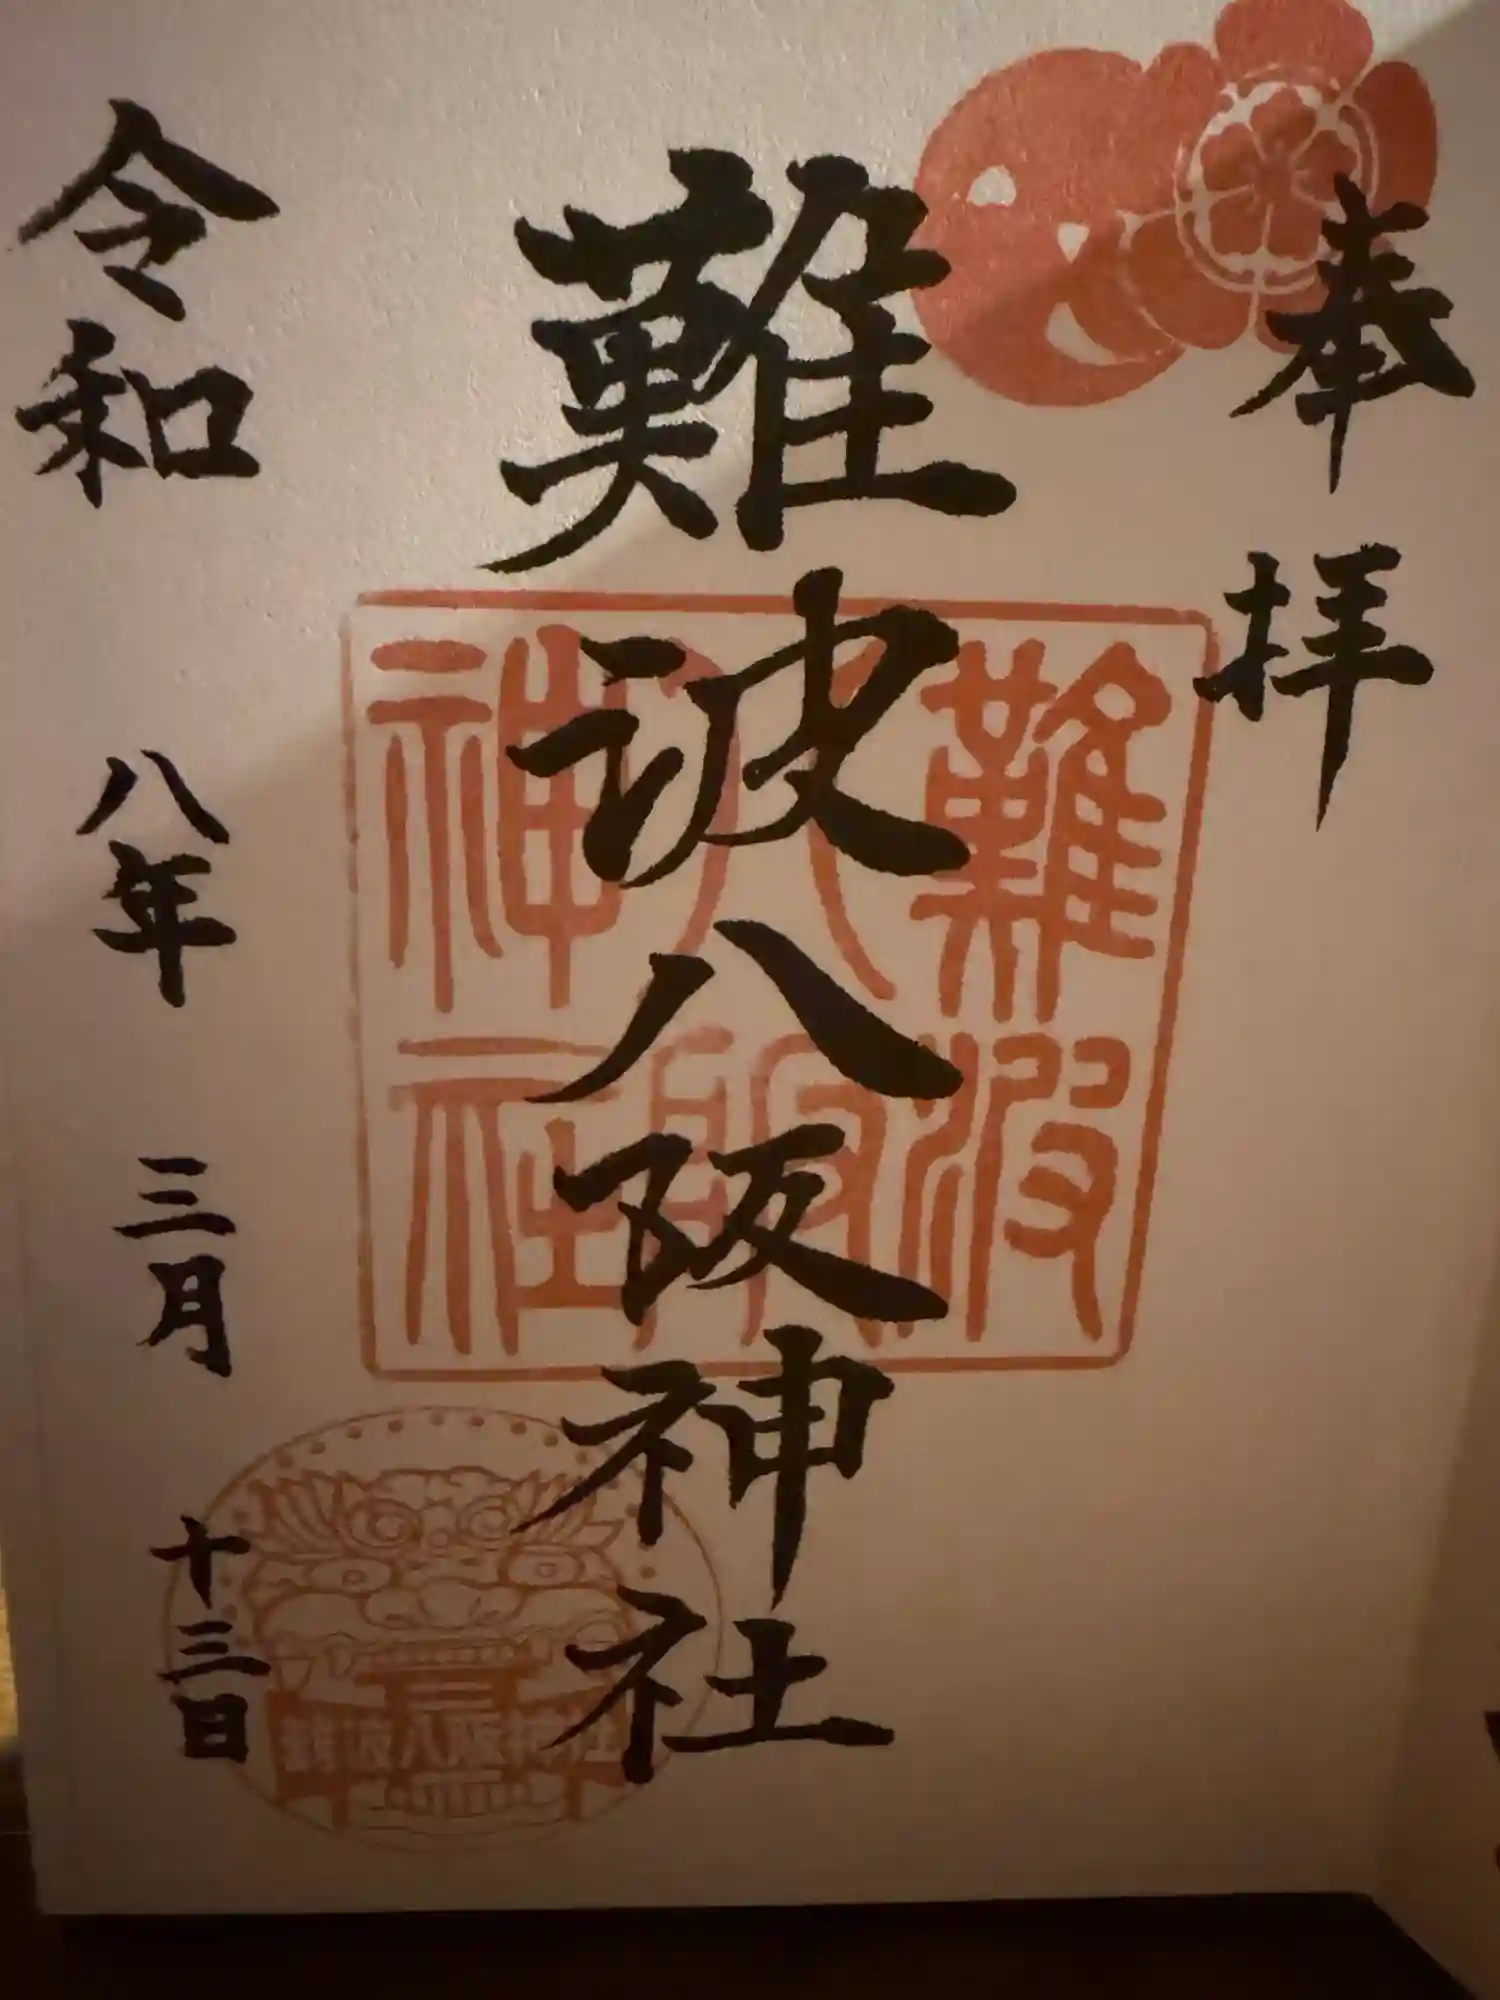 奉拝
難波八阪神社
難波
八阪
神社
令和 八年 三月 十三日
難波八阪神社